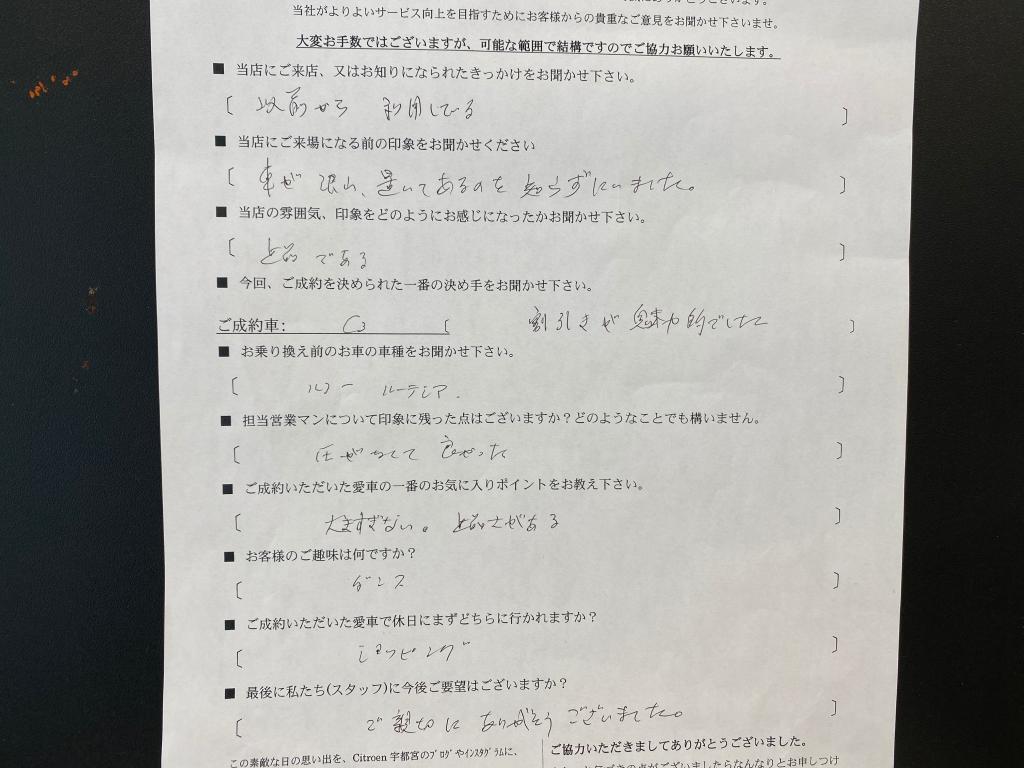 当社がよりよいサービス向上を目指すためにお客様からの貴重なご意見をお聞かせ下さいませ。
大変お手数ではございますが、可能な範囲で結構ですのでご協力お願いいたします。
■ 当店にご来店、又はお知りになられたきっかけをお聞かせ下さい。
〔 以前から 利用してる 〕
■ 当店にご来場になる前の印象をお聞かせください
〔 車が 沢山、置いてあるのを 知らずにいました。 〕
■ 当店の雰囲気、印象をどのようにお感じになったかお聞かせ下さい。
〔 上品である 〕
■ 今回、ご成約を決められた一番の決め手をお聞かせ下さい。
ご成約車: C3 〔 割引きが 魅力的でした 〕
■ お乗り換え前のお車の車種をお聞かせ下さい。
〔 ルノー ルーテシア. 〕
■ 担当営業マンについて印象に残った点はございますか？どのようなことでも構いません。
〔 圧がなくて 良かった 〕
■ ご成約いただいた愛車の一番のお気に入りポイントをお教え下さい。
〔 大きすぎない。上品さがある 〕
■ お客様のご趣味は何ですか？
〔 ダンス 〕
■ ご成約いただいた愛車で休日にまずどちらに行かれますか？
〔 ショッピング 〕
■ 最後に私たち(スタッフ)に今後ご要望はございますか？
〔 ご親切に ありがとうございました。 〕
この素敵な日の思い出を、Citroen 宇都宮のブログやインスタグラムに、
ご協力いただきましてありがとうございました。